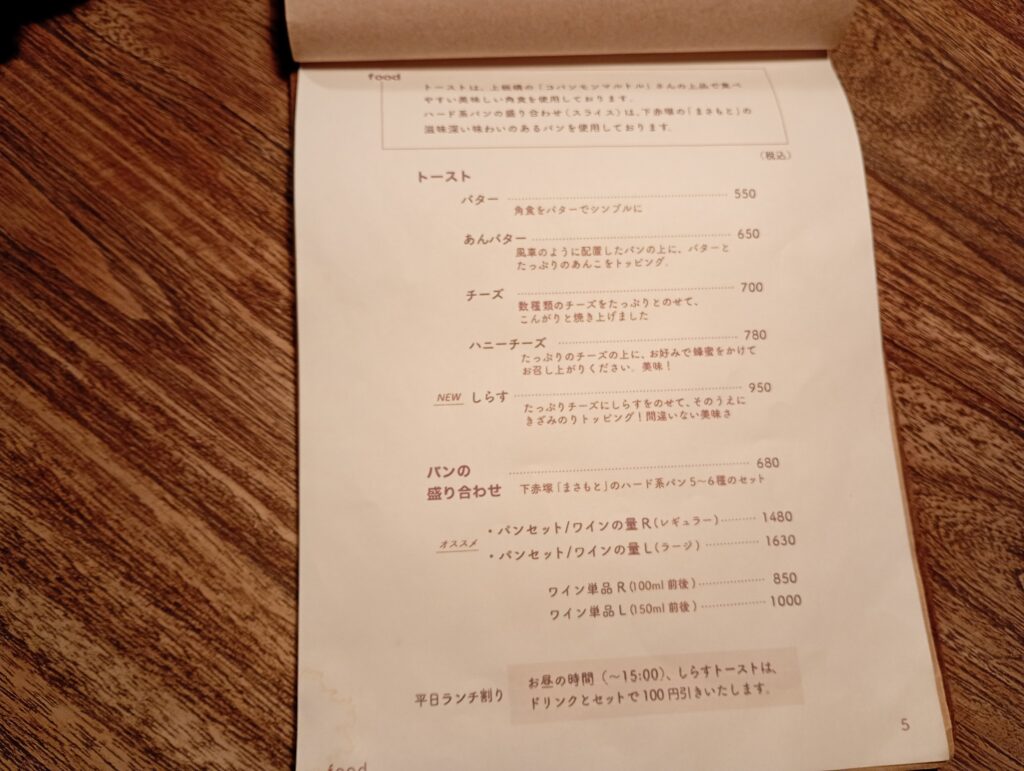 food
トーストは、上板橋の「コパンモンマルトル」さんの上品で食べ
やすい美味しい角食を使用しております。
ハード系パンの盛り合わせ（スライス）は、下赤塚の「まさもと」の
滋味深い味わいのあるパンを使用しております。
（税込）
トースト
バター 550
角食をバターでシンプルに
あんバター 650
風車のように配置したパンの上に、バターと
たっぷりのあんこをトッピング。
チーズ 700
数種類のチーズをたっぷりとのせて、
こんがりと焼き上げました
ハニーチーズ 780
たっぷりのチーズの上に、お好みで蜂蜜をかけて
お召し上がりください。美味！
NEW しらす 950
たっぷりチーズにしらすをのせて、そのうえに
きざみのりトッピング！間違いない美味さ
パンの
盛り合わせ 680
下赤塚「まさもと」のハード系パン5〜6種のセット
オススメ
・パンセット/ワインの量 R（レギュラー） 1480
・パンセット/ワインの量 L（ラージ） 1630
ワイン単品 R（100ml 前後） 850
ワイン単品 L（150ml 前後） 1000
平日ランチ割り
お昼の時間（〜15:00）、しらすトーストは、
ドリンクとセットで100円引きいたします。
5
food